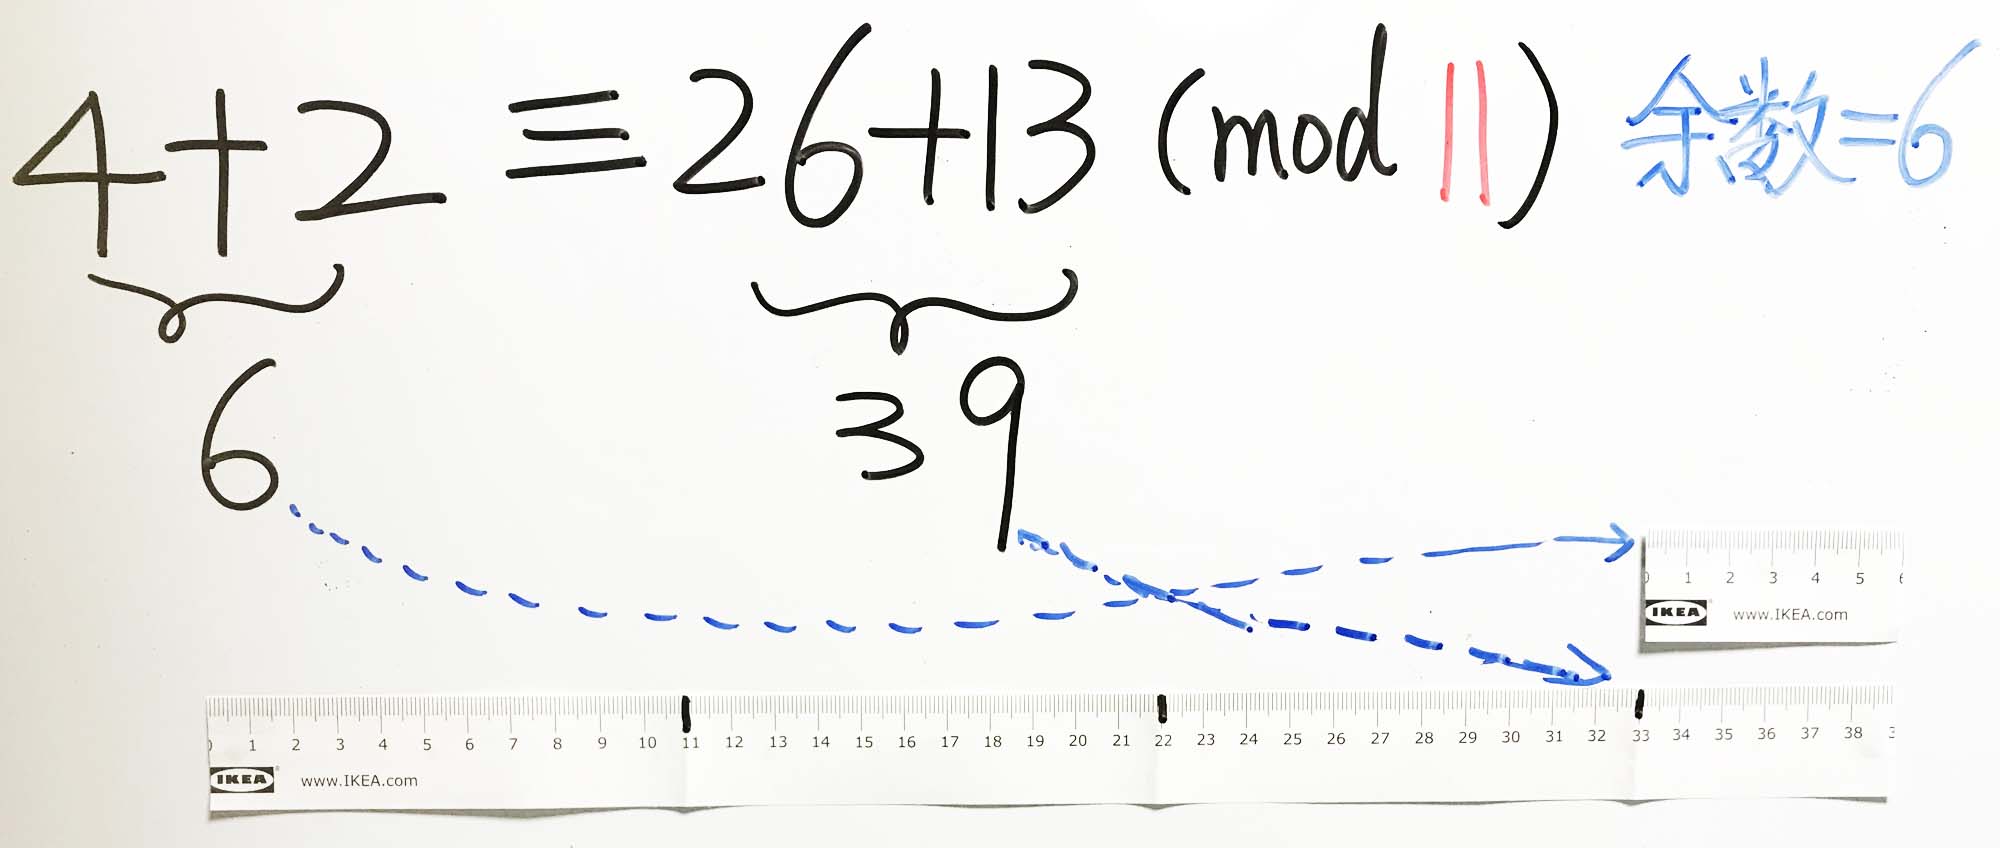 4+2 ≡ 26+13 (mod 11) 余数=6
6 39
0 1 2 3 4 5 6
IKEA www.IKEA.com
0 1 2 3 4 5 6 7 8 9 10 11 12 13 14 15 16 17 18 19 20 21 22 23 24 25 26 27 28 29 30 31 32 33 34 35 36 37 38
IKEA® www.IKEA.com